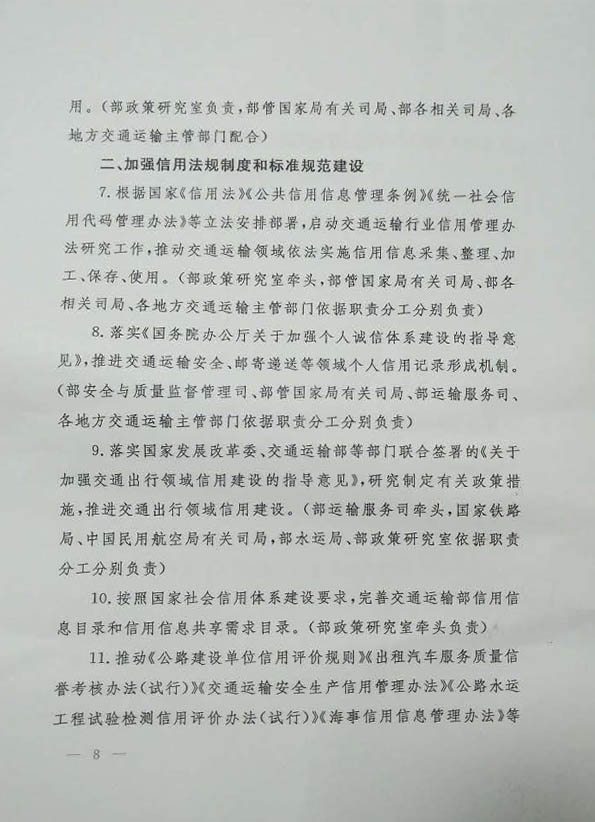 用。(部政策研究室负责,部管国家局有关司局、部各相关司局、各
地方交通运输主管部门配合)
二、加强信用法规制度和标准规范建设
7. 根据国家《信用法》《公共信用信息管理条例》《统一社会信
用代码管理办法》等立法安排部署,启动交通运输行业信用管理办
法研究工作,推动交通运输领域依法实施信用信息采集、整理、加
工、保存、使用。(部政策研究室牵头,部管国家局有关司局、部各
相关司局、各地方交通运输主管部门依据职责分工分别负责)
8. 落实《国务院办公厅关于加强个人诚信体系建设的指导意
见》,推进交通运输安全、邮寄递送等领域个人信用记录形成机制。
(部安全与质量监督管理司、部管国家局有关司局、部运输服务司、
各地方交通运输主管部门依据职责分工分别负责)
9. 落实国家发展改革委、交通运输部等部门联合签署的《关于
加强交通出行领域信用建设的指导意见》,研究制定有关政策措
施,推进交通出行领域信用建设。(部运输服务司牵头,国家铁路
局、中国民用航空局有关司局,部水运局、部政策研究室依据职责
分工分别负责)
10. 按照国家社会信用体系建设要求,完善交通运输部信用信
息目录和信用信息共享需求目录。(部政策研究室牵头负责)
11. 推动《公路建设单位信用评价规则》《出租汽车服务质量信
誉考核办法(试行)》《交通运输安全生产信用管理办法》《公路水运
工程试验检测信用评价办法(试行)》《海事信用信息管理办法》等
— 8 —